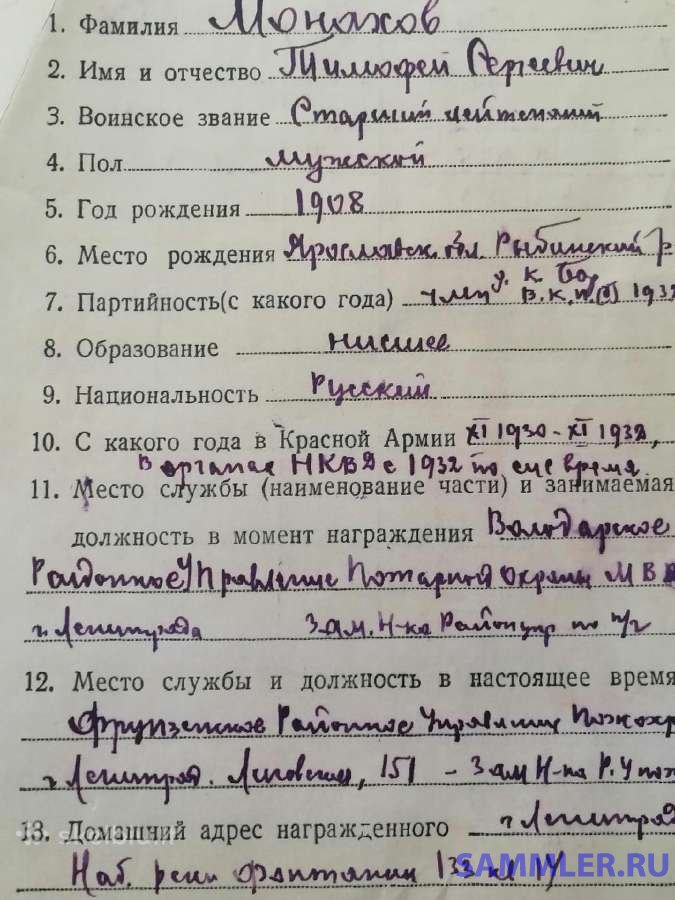 1. Фамилия Монахов
2. Имя и отчество Тимофей Сергеевич
3. Воинское звание Старший лейтенант
4. Пол мужской
5. Год рождения 1908
6. Место рождения Ярославск. обл. Рыбинский р
7. Партийность(с какого года) член В.К.П(б) 1932
8. Образование низшее
9. Национальность Русский
10. С какого года в Красной Армии XI 1930-XI 1932,
В органах НКВД с 1932 по сие время
11. Место службы (наименование части) и занимаемая
должность в момент награждения Володарское
Районное Управление Пожарной Охраны МВД
г. Ленинграда Зам. Н-ка Райупр по п/ч
12. Место службы и должность в настоящее время
Фрунзенское Районное Управление Пожохр
г. Ленинград. Лиговская, 151 - Зам Н-ка Р.У пож
13. Домашний адрес награжденного г Ленинград
Наб. реки Фонтанки 133 кв
SAMMLER.RU